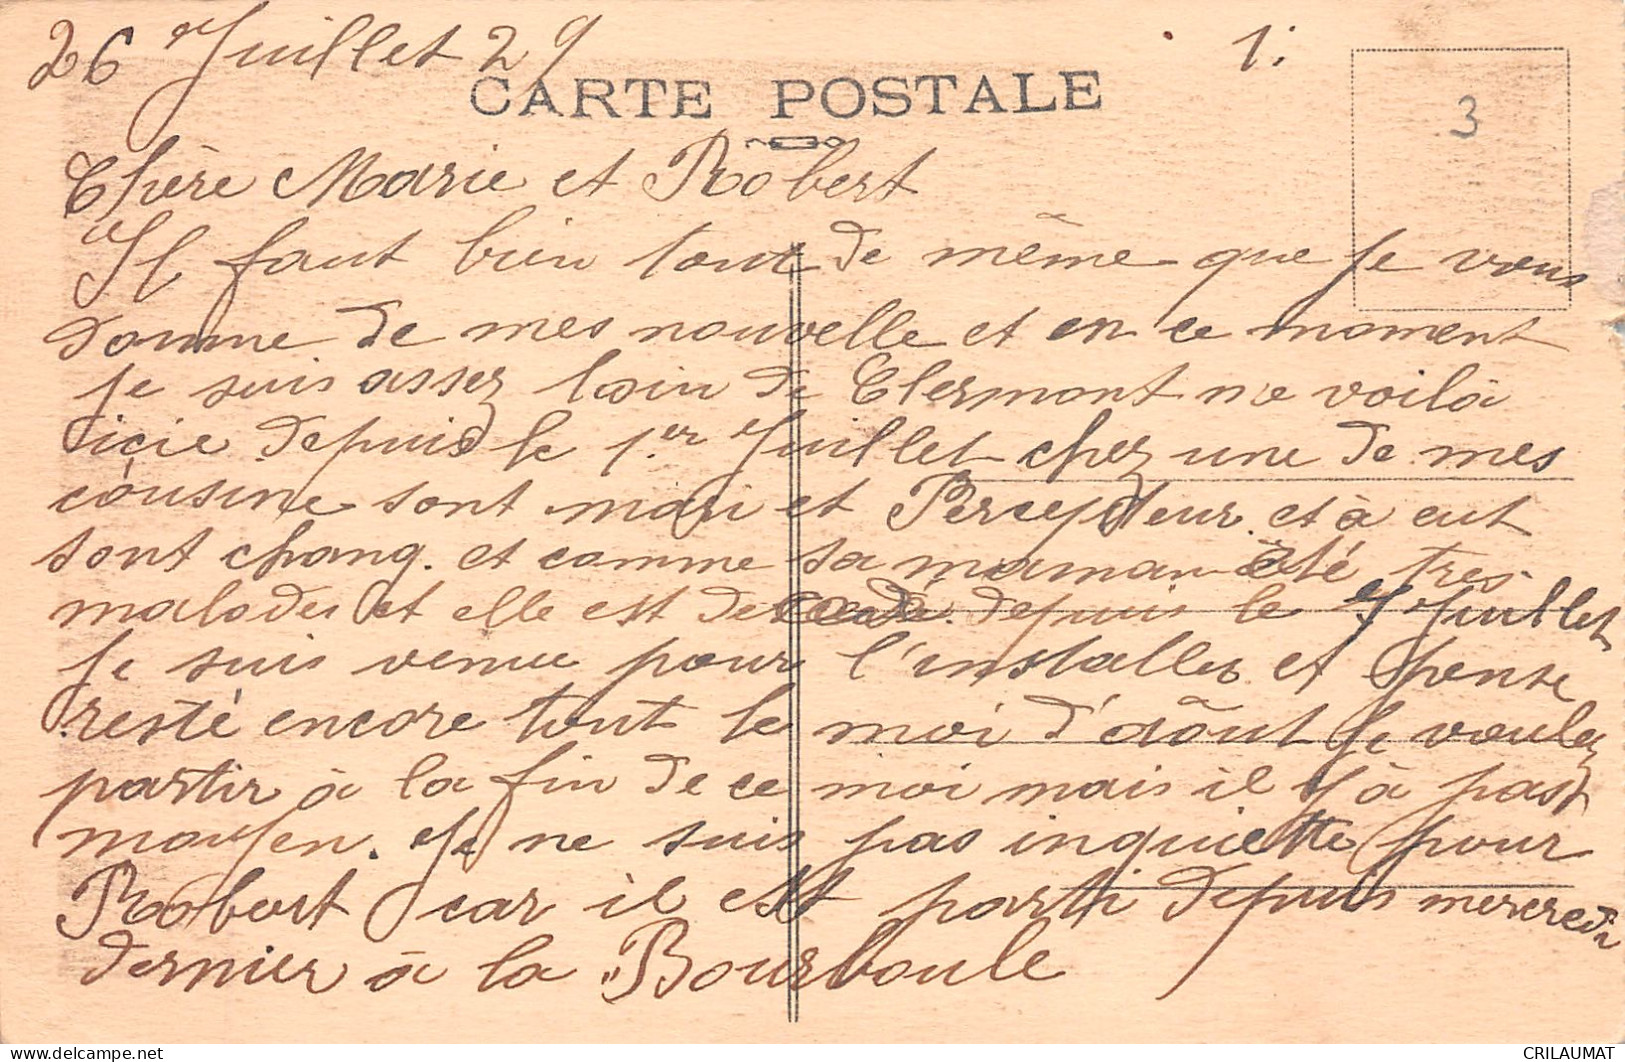 26 Juillet 29
1.
CARTE POSTALE
3
Chère Marie et Robert
Il faut bien tout de même que je vous
donne de mes nouvelle et en ce moment
je suis assez loin de Clermont me voilà
icie depuis le 1.er Juillet chez une de mes
cousine sont mari et Percepteur et à eut
sont chang. et comme sa maman été tres
malades et elle est depuis le Juillet
je suis venue pour l'installer et pense
resté encore tout le moi d'août je voulez
partir à la fin de ce moi mais il y à pas
moyen. Je ne suis pas inquiette pour
Robert car il est parti depuis mercredi
dernier à la Bourboule
CRILAUMAT